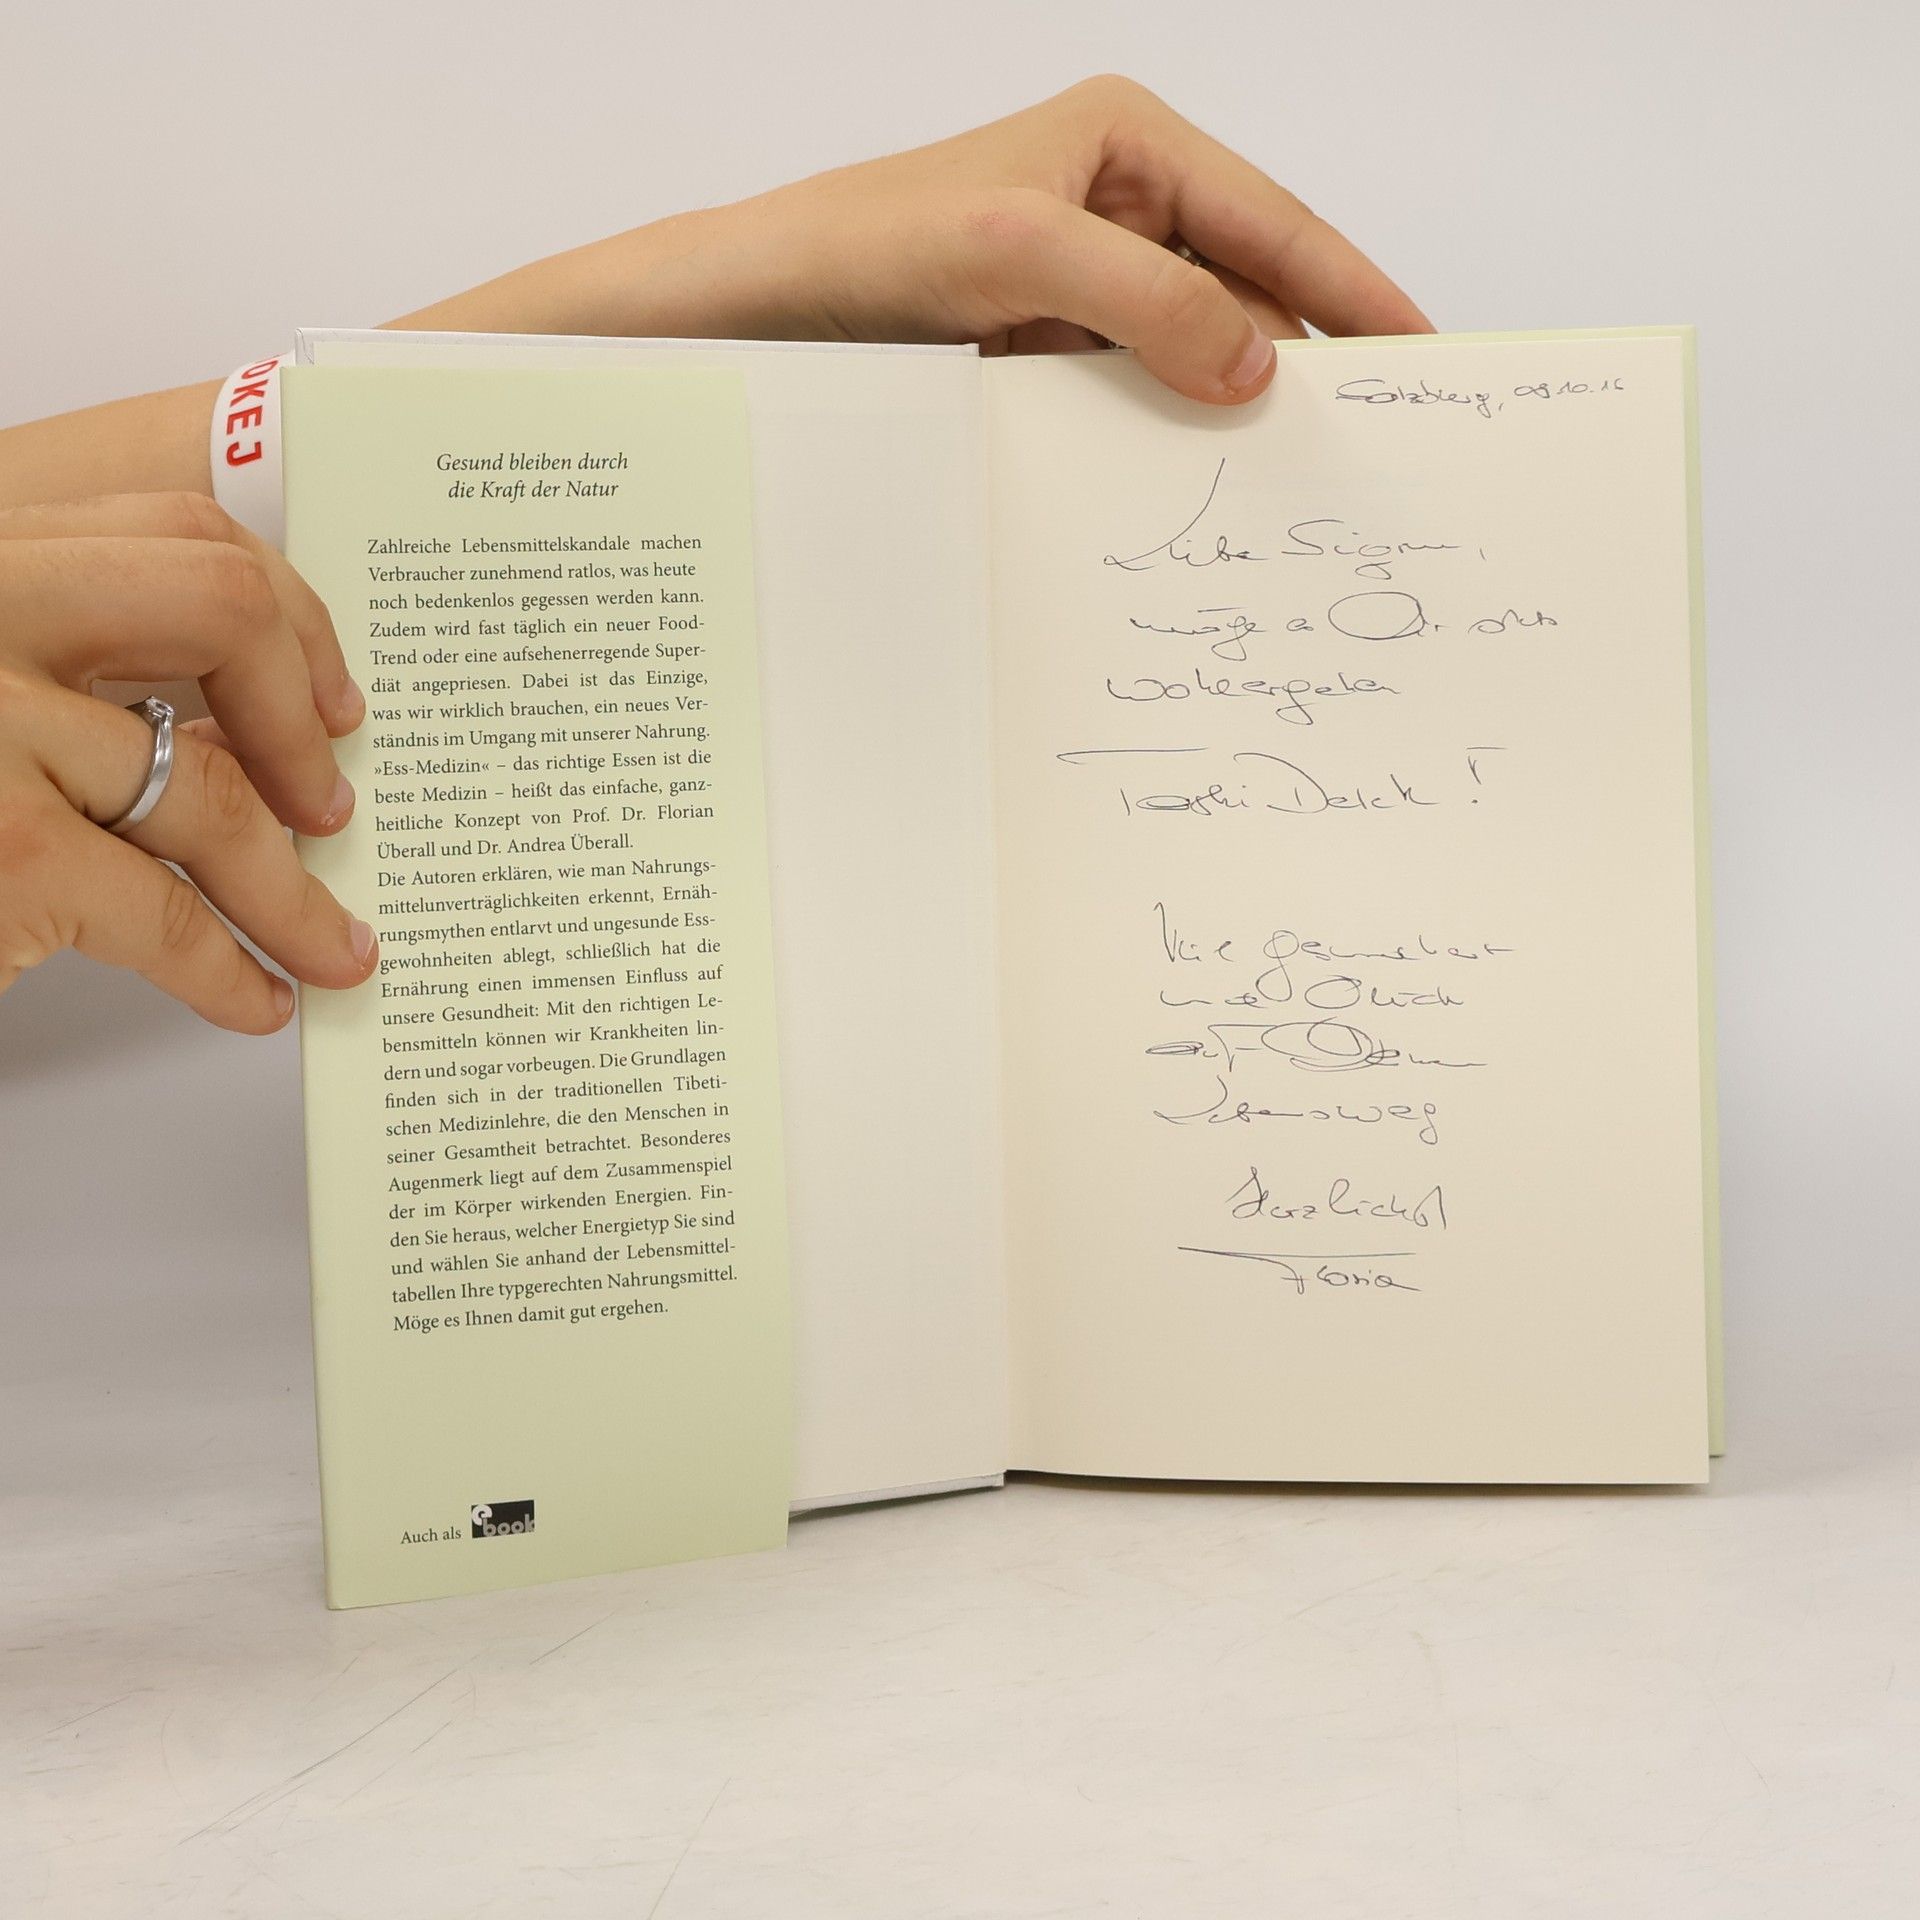 OKEJ
Gesund bleiben durch
die Kraft der Natur
Zahlreiche Lebensmittelskandale machen
Verbraucher zunehmend ratlos, was heute
noch bedenkenlos gegessen werden kann.
Zudem wird fast täglich ein neuer Food-
Trend oder eine aufsehenerregende Super-
diät angepriesen. Dabei ist das Einzige,
was wir wirklich brauchen, ein neues Ver-
ständnis im Umgang mit unserer Nahrung.
»Ess-Medizin« – das richtige Essen ist die
beste Medizin – heißt das einfache, ganz-
heitliche Konzept von Prof. Dr. Florian
Überall und Dr. Andrea Überall.
Die Autoren erklären, wie man Nahrungs-
mittelunverträglichkeiten erkennt, Ernäh-
rungsmythen entlarvt und ungesunde Ess-
gewohnheiten ablegt, schließlich hat die
Ernährung einen immensen Einfluss auf
unsere Gesundheit: Mit den richtigen Le-
bensmitteln können wir Krankheiten lin-
dern und sogar vorbeugen. Die Grundlagen
finden sich in der traditionellen Tibeti-
schen Medizinlehre, die den Menschen in
seiner Gesamtheit betrachtet. Besonderes
Augenmerk liegt auf dem Zusammenspiel
der im Körper wirkenden Energien. Fin-
den Sie heraus, welcher Energietyp Sie sind
und wählen Sie anhand der Lebensmittel-
tabellen Ihre typgerechten Nahrungsmittel.
Möge es Ihnen damit gut ergehen.
Auch als ebook
Salzburg, 08.10.16
Liebe
möge es Dir stets
wohlergehen
Tashi Delek !
Viel Gesundheit
und Glück
auf Deinem
Lebensweg
Herzlichst
Florian